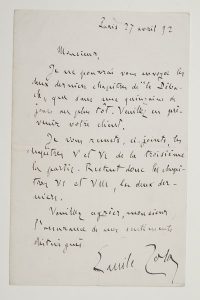 Lundi 27 avril 92
Monsieur,
Je ne pourrai vous envoyer les
deux derniers chapitres de "la Débâ-
cle", que dans une quinzaine de
jours au plus tôt. Veuillez en pré-
venir votre client.
Je vous remets, ci-joints, les
chapitres V et VI de la troisième
partie. Restent donc les chapi-
tres VII et VIII, les deux der-
niers.
Veuillez agréer, monsieur,
l'assurance de mes sentiments
distingués.
Emile Zola